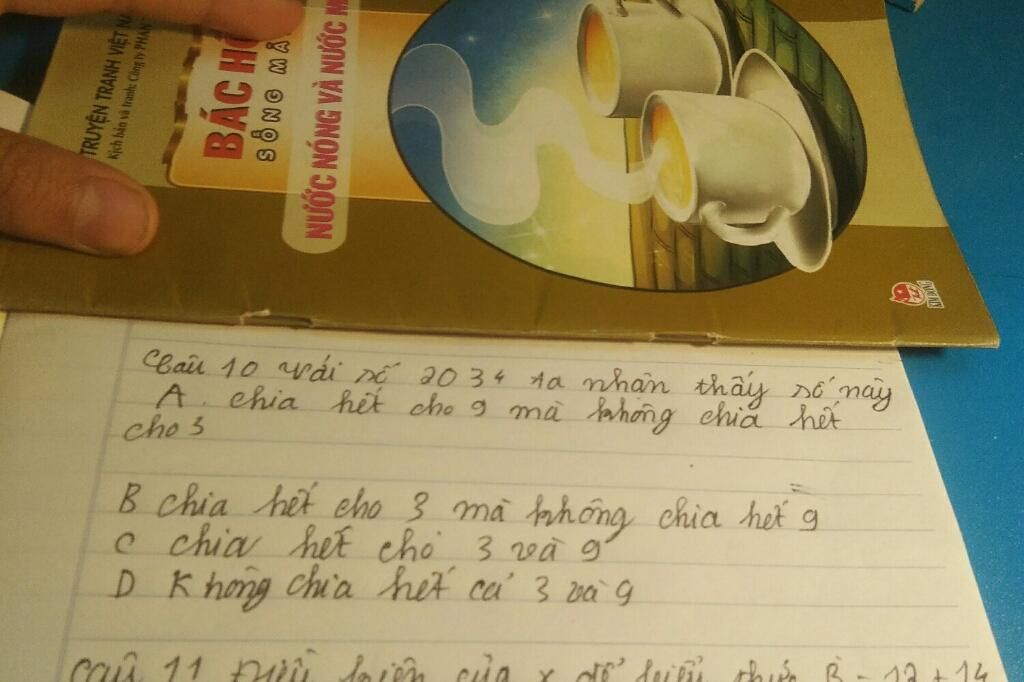 TRUYỆN TRANH VIỆT NA
Kịch bản và tranh: Công ty PHAN
BÁC HỒ
SỐNG MÃ
NƯỚC NÓNG VÀ NƯỚC
KIM ĐỒNG
Câu 10 Với số 2034 ta nhận thấy số này
A. chia hết cho 9 mà không chia hết
cho 3
B chia hết cho 3 mà không chia hết 9
C chia hết cho 3 và 9
D Không chia hết cả 3 và 9
Câu 11 Điều kiện của x để biểu thức B = 12 + 14